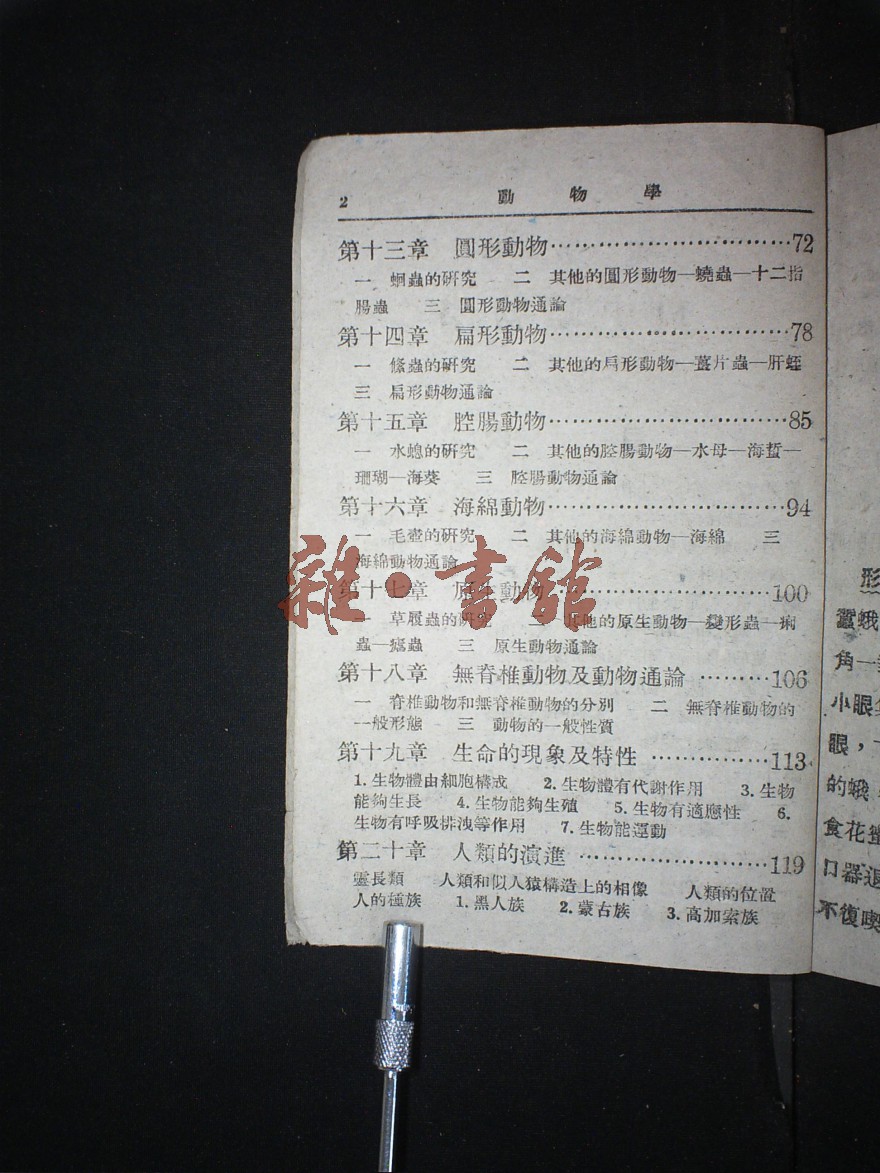 2 動物學
第十三章 圓形動物……………………………72
一 蛔蟲的研究 二 其他的圓形動物—蟯蟲—十二指
腸蟲 三 圓形動物通論
第十四章 扁形動物……………………………78
一 絛蟲的研究 二 其他的扁形動物—薑片蟲—肝蛭
三 扁形動物通論
第十五章 腔腸動物……………………………85
一 水螅的研究 二 其他的腔腸動物—水母—海蜇—
珊瑚—海葵 三 腔腸動物通論
第十六章 海綿動物……………………………94
一 毛壺的研究 二 其他的海綿動物—海綿 三
海綿動物通論
第十七章 原生動物……………………………100
一 草履蟲的研究 二 其他的原生動物—變形蟲—痢
蟲—瘧蟲 三 原生動物通論
第十八章 無脊椎動物及動物通論 …………106
一 脊椎動物和無脊椎動物的分別 二 無脊椎動物的
一般形態 三 動物的一般性質
第十九章 生命的現象及特性 ………………113
1.生物體由細胞構成 2.生物體有代謝作用 3.生物
能夠生長 4.生物能夠生殖 5.生物有適應性 6.
生物有呼吸排洩等作用 7.生物能運動
第二十章 人類的演進 ………………………119
靈長類 人類和似人猿構造上的相像 人類的位置
人的種族 1.黑人族 2.蒙古族 3.高加索族
雜·書館
形
蛾
角一
小眼
眼,
的蛾
食花蜜
口器退
不復喫